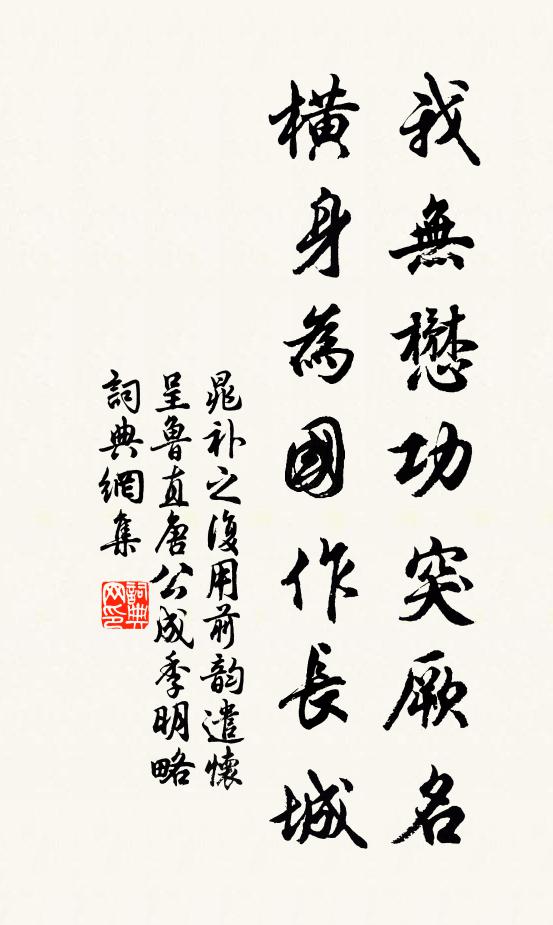 我無懋功突厥名
橫身為國作長城
晁補之復用前韵遣懷
呈魯直唐公成季明略
詞典網集
詞典網印